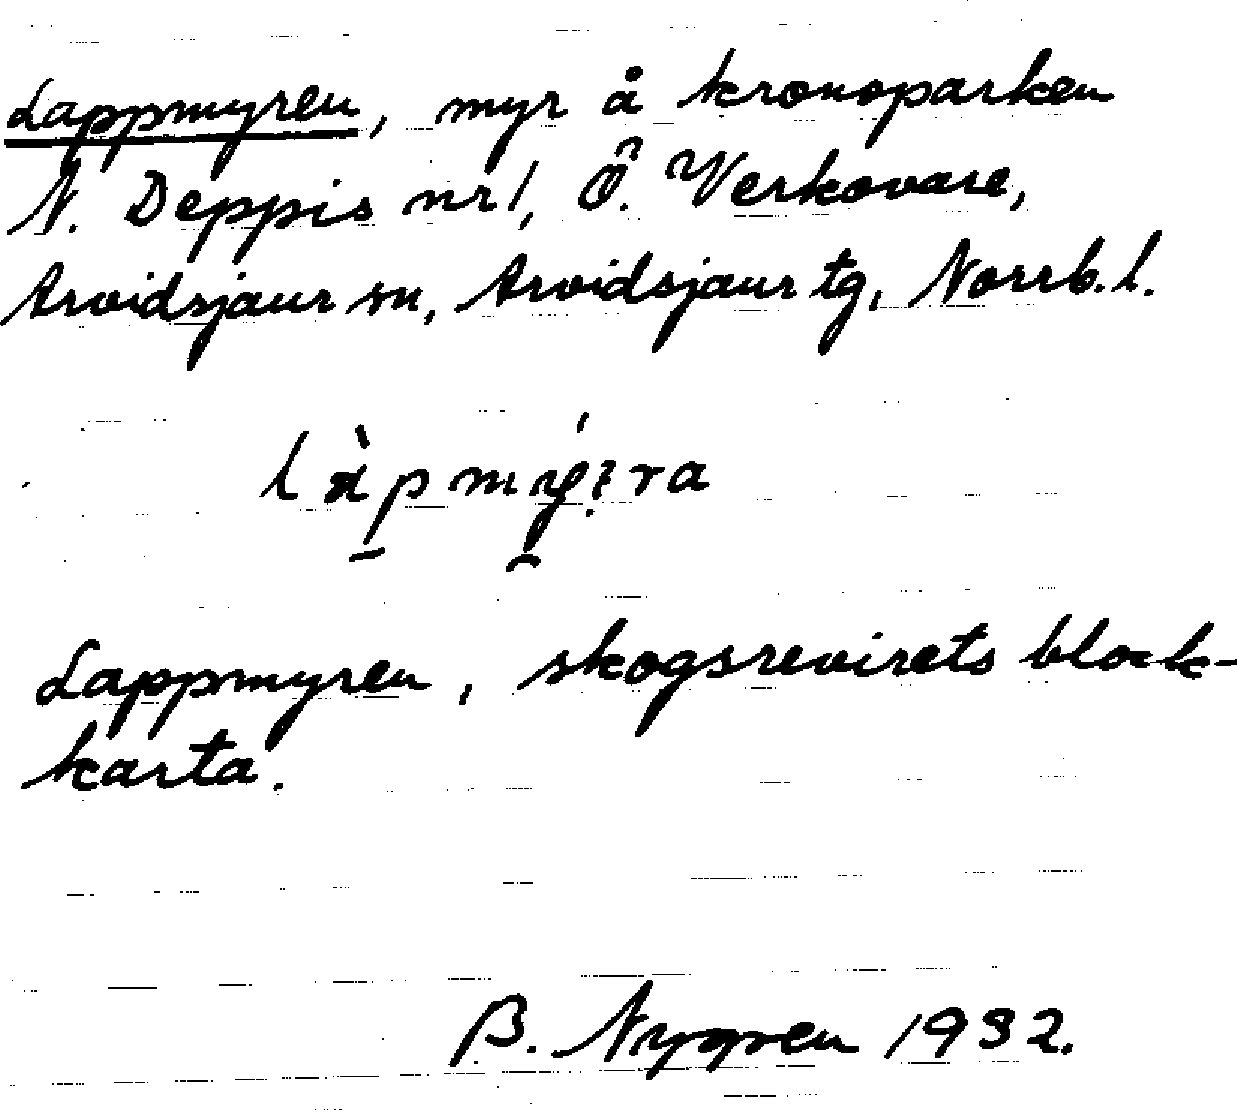 Lappmyren, myr å kronoparken
N. Deppis nr 1, Ö. Verkovare,
Arvidsjaur sn, Arvidsjaur tg, Norrb. l.
Lappmyren, skogsrevirets block-
karta.
B. Nygren 1932.